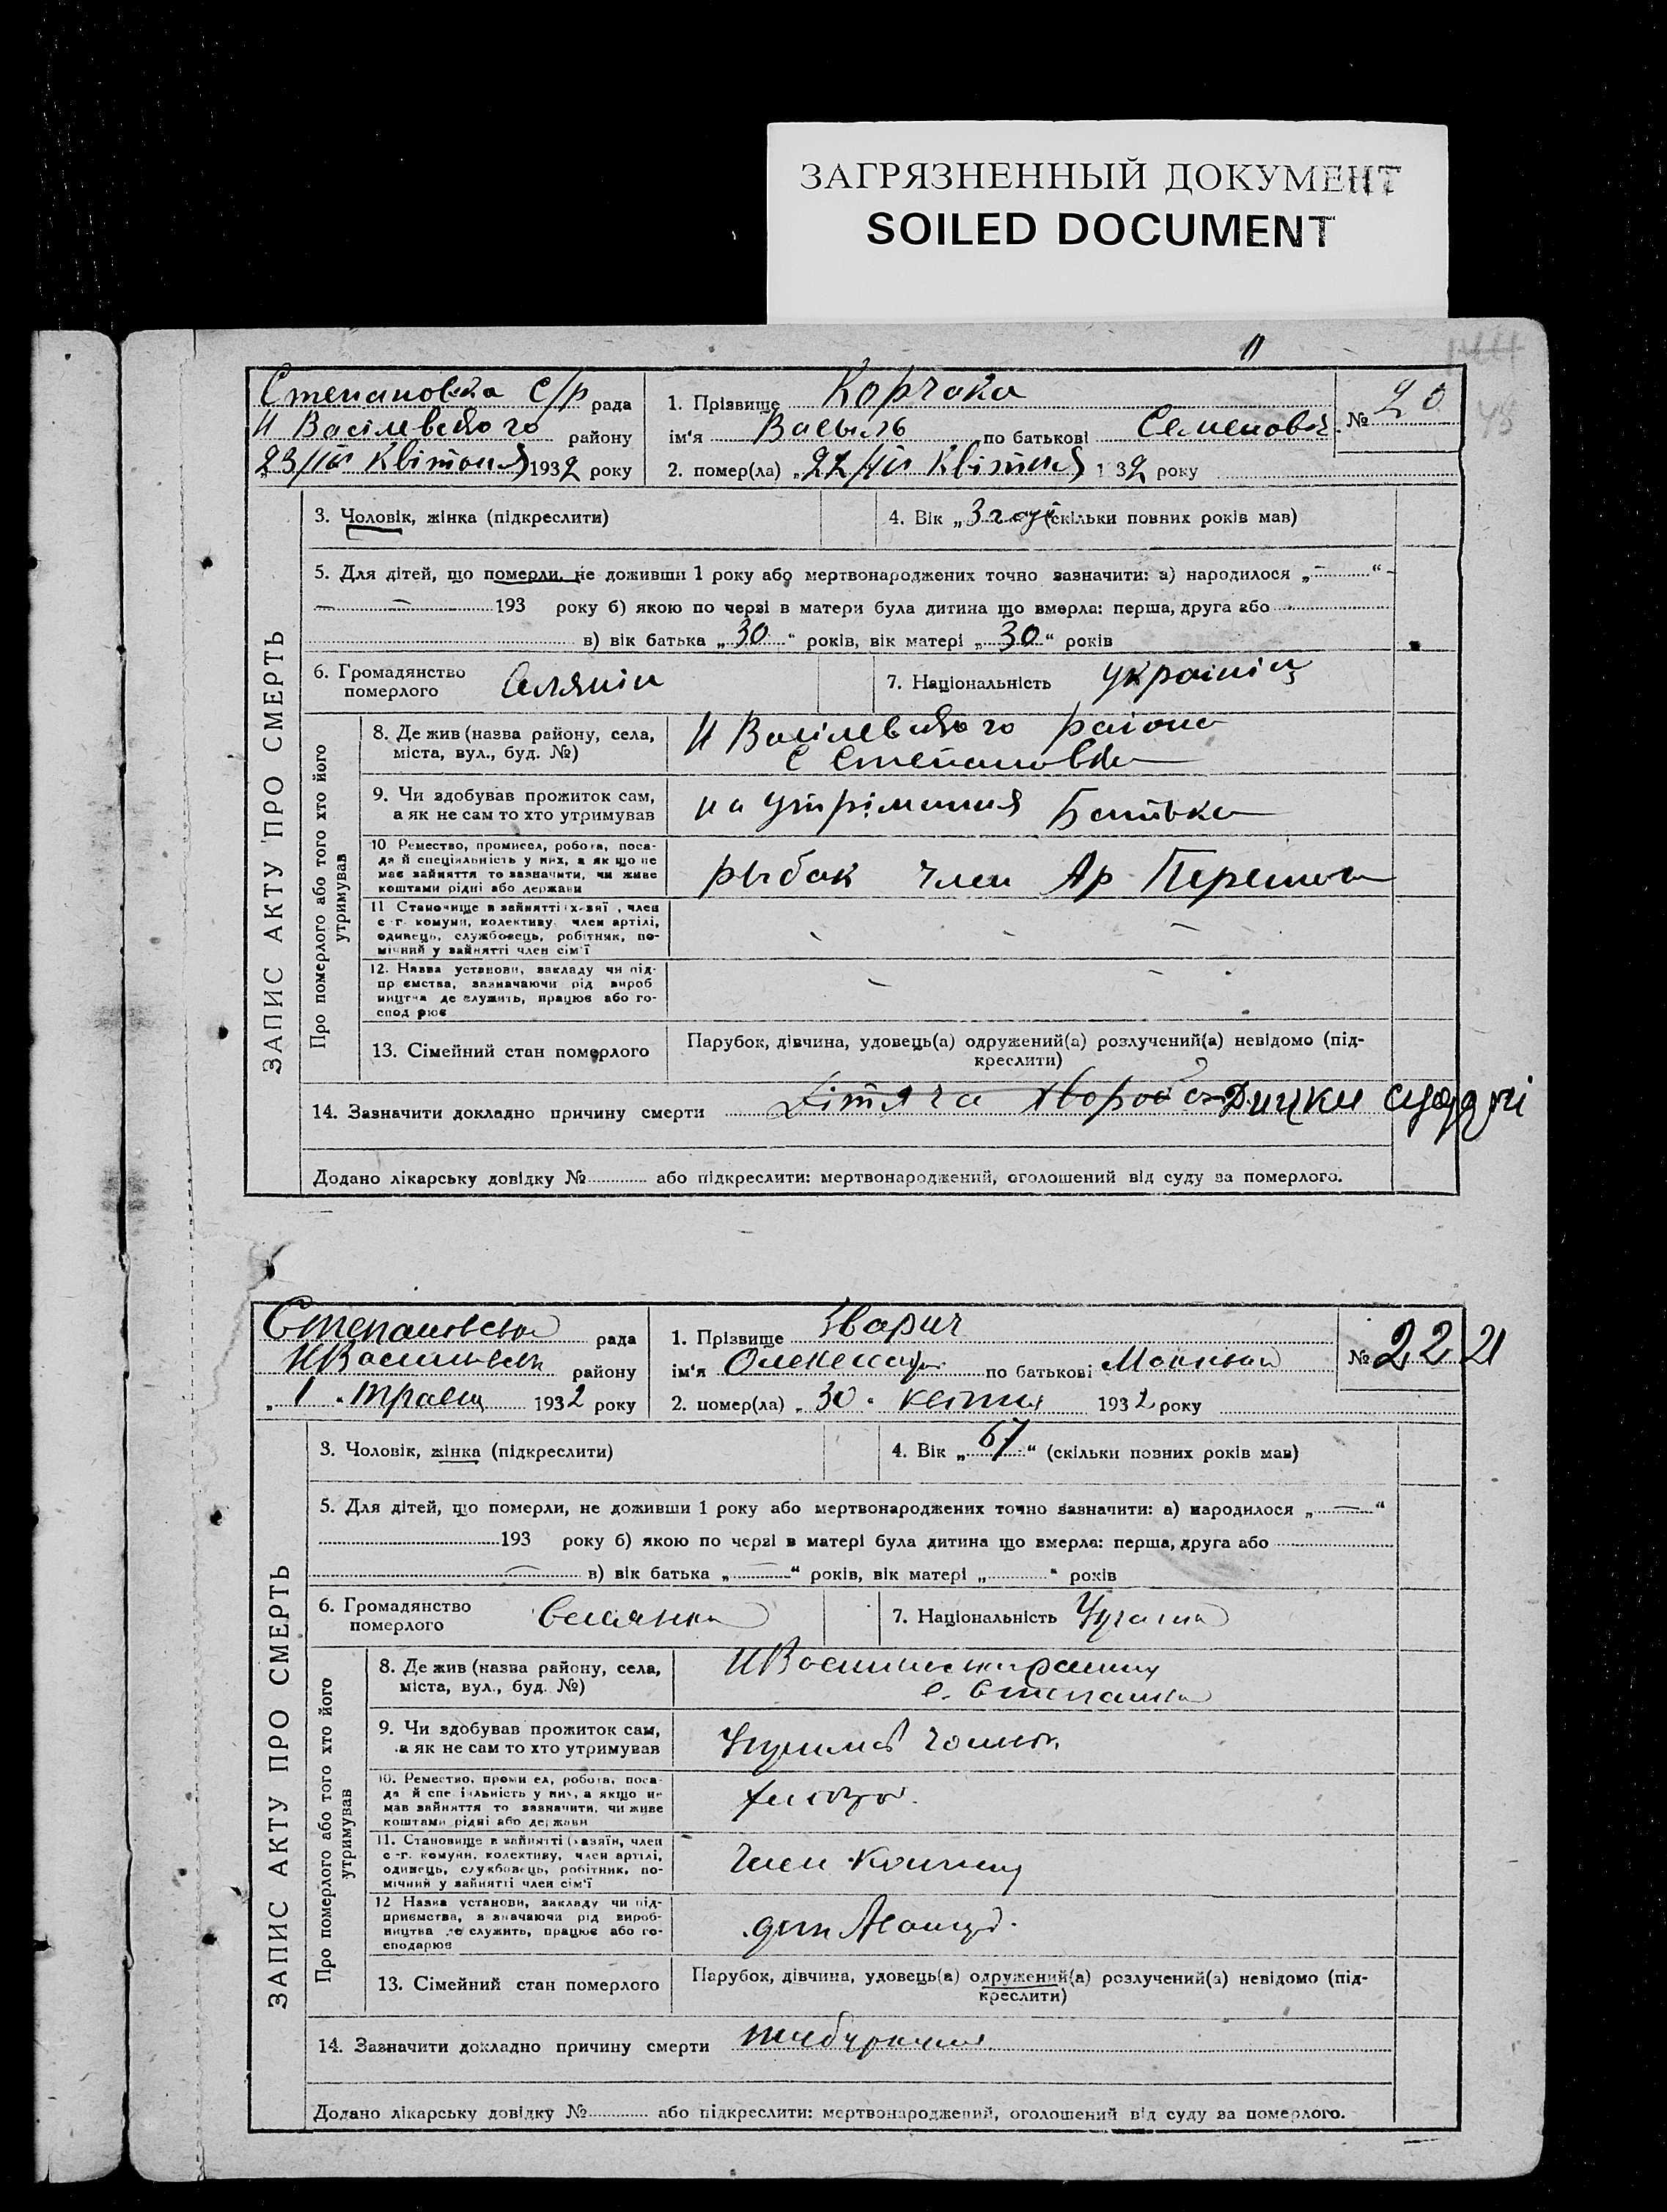 ЗАГРЯЗНЕННЫЙ ДОКУМЕНТ
SOILED DOCUMENT
144
48
Степановска С/Р рада
1. Прізвище Корчака
№ 20
Н Васілевського району
ім'я Васыль по батькові Семенович
23/IV Квітоня 1932 року
2. помер(ла) „22/IV Квітня 1932 року
ЗАПИС АКТУ ПРО СМЕРТЬ
3. Чоловік, жінка (підкреслити)
4. Вік „3 году (скільки повних років мав)
5. Для дітей, що померли, не доживши 1 року або мертвонароджених точно зазначити: а) народилося „—“
193 року б) якою по черзі в матери була дитина що вмерла: перша, друга або
в) вік батька „30“ років, вік матері „30“ років
6. Громадянство
померлого
Селянін
7. Національність україніц
Про померлого або того хто його
утримував
8. Де жив (назва району, села,
міста, вул., буд. №)
Н Васілевського района
С Степановка
9. Чи здобував прожиток сам,
а як не сам то хто утримував
на утрімания Батька
10. Ремество, промисел, робота, поса-
да й спеціяльність у них, а як що не
має зайняття то зазначити, чи живе
коштами рідні або держави
рыбак член Ар
11 Становище в зайнятті (х-зяї , член
с г. комуни, колективу, член артілі,
одинець, службовець, робітник, по-
мічний у зайнятті член сім'ї
12. Назва установи, закладу чи під-
пр ємства, зазначаючи рід вироб
ництва де служить, працює або го-
спод рює
13. Сімейний стан померлого
Парубок, дівчина, удовець(а) одружений(а) розлучений(а) невідомо (під-
креслити)
14. Зазначити докладно причину смерти Дітяча хвороба
Додано лікарську довідку № або підкреслити: мертвонароджений, оголошений від суду за померлого.
Степановська рада
1. Прізвище Зварич
№ 22 21
району
ім'я по батькові
„ 1 “ травня 1932 року
2. помер(ла) „ 30 “ квітня 1932 року
ЗАПИС АКТУ ПРО СМЕРТЬ
3. Чоловік, жінка (підкреслити)
4. Вік „67“ (скільки повних років мав)
5. Для дітей, що померли, не доживши 1 року або мертвонароджених точно зазначити: а) народилося „—“
193 року б) якою по черзі в матері була дитина що вмерла: перша, друга або
в) вік батька „ “ років, вік матері „ “ років
6. Громадянство
померлого
селянка
7. Національність
Про померлого або того хто його
утримував
8. Де жив (назва району, села,
міста, вул., буд. №)
с. Степановка
9. Чи здобував прожиток сам,
а як не сам то хто утримував
10. Ремество, проми ел, робота, поса-
да й спе іяльність у них, а якщо не
мав зайняття то зазначити, чи живе
коштами рідні або держави
11. Становище в зайнятті (хазяїн, член
с -г. комуни, колективу, член артілі,
одинець, службовець, робітник, по-
мічний у зайнятті член сім'ї
член
12 Назва установи, закладу чи під-
приємства, зазначаючи рід вироб-
ництва де служить, працює або го-
сподарює
13. Сімейний стан померлого
Парубок, дівчина, удовець(а) одружений(а) розлучений(а) невідомо (під-
креслити)
14. Зазначити докладно причину смерти
Додано лікарську довідку № або підкреслити: мертвонароджений, оголошений від суду за померлого.